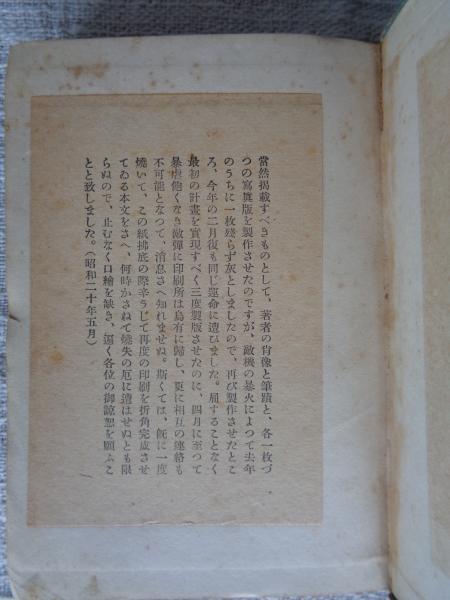 當然揭載すべきものとして、著者の肖像と筆蹟と、各一枚づ
つの寫眞版を製作させたのですが、敵機の暴火によつて去年
のうちに一枚殘らず灰としましたので、再び製作させたとこ
ろ、今年の二月復も同じ運命に遭ひました。屈することなく
最初の計畫を實現すべく三度製版させたのに、四月に至つて
暴虐飽くなき敵彈に印刷所は烏有に歸し、更に相互の連絡も
不可能となつて、消息さへ知れませぬ。斯くては、既に一度
燒いて、この紙拂底の際辛うじて再度の印刷を折角完成させ
てゐる本文をさへ、何時かさねて燒失の厄に遭はせぬとも限
らぬので、止むなく口繪を缺き、遍く各位の御諒恕を願ふこ
とと致しました。（昭和二十年五月）